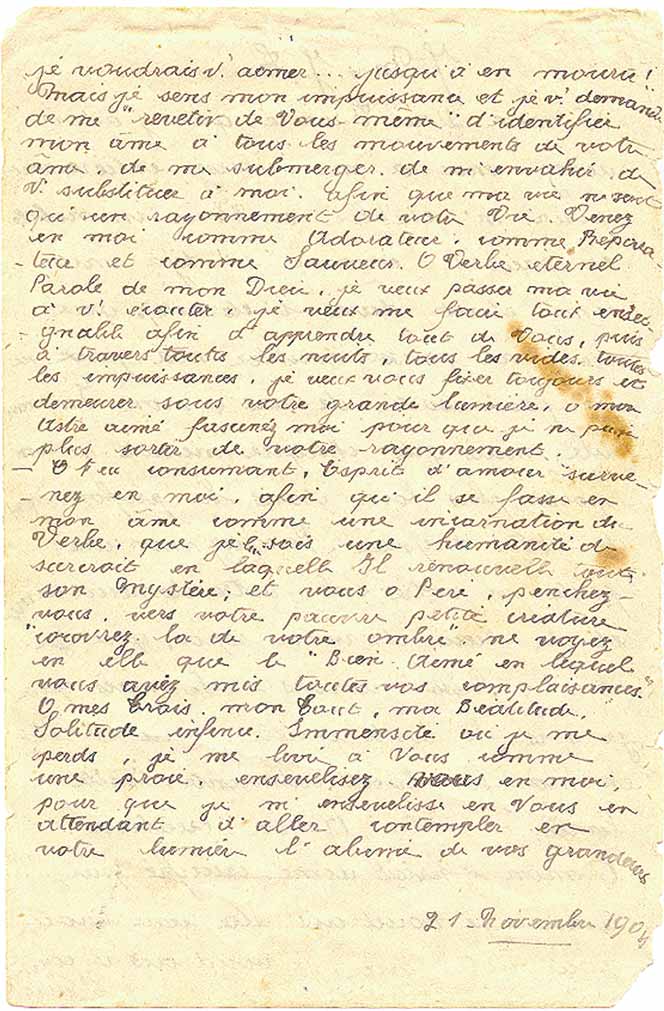 je voudrais v. aimer... jusqu'à en mourir !
Mais je sens mon impuissance et je v. demande
de me "revetir de Vous-meme" d'identifier
mon âme à tous les mouvements de votre
âme, de me submerger, de m'envahir, de
v. substituer à moi, afin que ma vie ne soit
qu'un rayonnement de votre Vie. Venez
en moi comme Adorateur, comme Répara-
-teur et comme Sauveur. O Verbe eternel
Parole de mon Dieu, je veux passer ma vie
à v. écouter, je veux me faire tout ensei-
-gnable afin d'apprendre tout de Vous, puis
à travers toutes les nuits, tous les vides, toutes
les impuissances, je veux vous fixer toujours et
demeurer sous votre grande lumière, ô mon
Astre aimé fascinez moi pour que je ne puisse
plus sortir de votre rayonnement.
- O Feu consumant, Esprit d'amour "surve-
-nez en moi, afin qu'il se fasse en
mon âme comme une incarnation du
Verbe, que je l. sois une humanité de
surcroit en laquelle Il renouvelle tout
son Mystère, et vous o Père, penchez-
vous, vers votre pauvre petite créature
"couvrez-la de votre ombre" ne voyez
en elle que le "Bien-Aimé en lequel
vous avez mis toutes vos complaisances"
O mes Trois, mon Tout, ma Béatitude,
Solitude infinie, Immensité où je me
perds, je me livre à Vous comme
une proie, ensevelisez vous en moi,
pour que je m'ensevelisse en Vous en
attendant d'aller contempler en
votre lumière l'abime de vos grandeurs
21 Novembre 1904